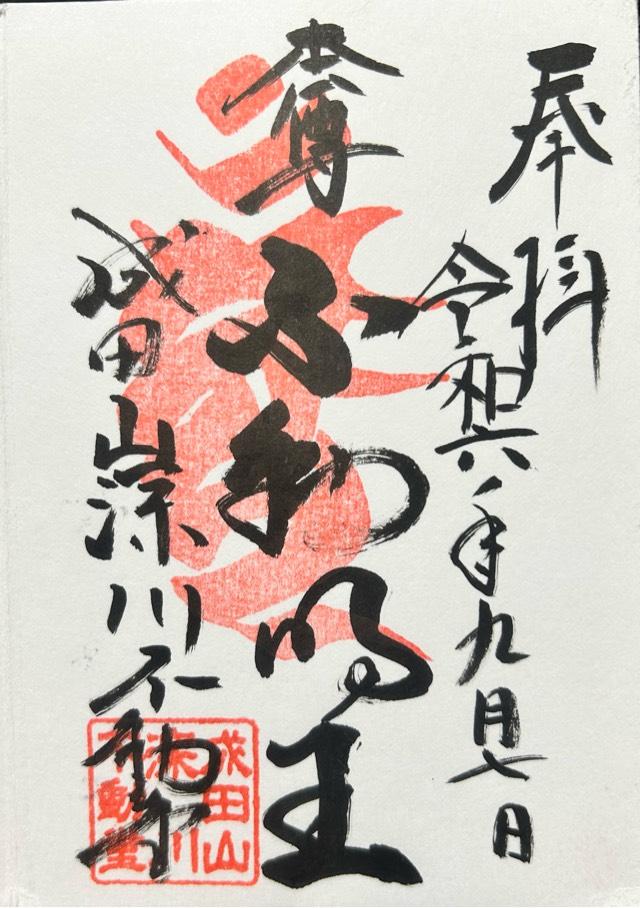 奉拝
令和六年九月七日
本尊
不動明王
成田山深川不動堂
成田山
深川
不動堂